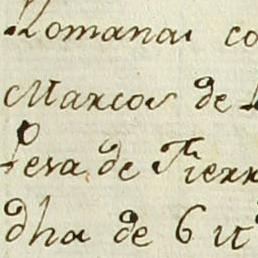 Romanas co
Marcos de
Pera de Tierr
dha de 6